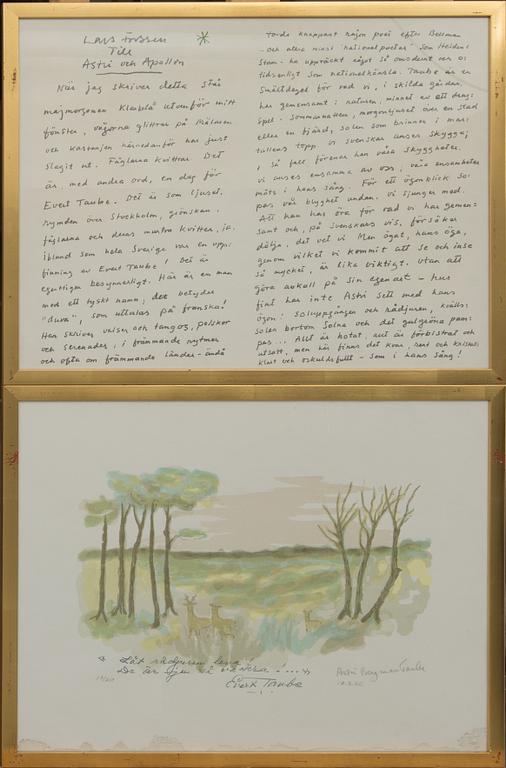 Lars Forssell
Till
Astri och Apollon
När jag skriver detta står
majmorgonen klarblå utanför mitt
fönster, vågorna glittrar på Mälaren
och kastanjen härnedanför har just
slagit ut. Fåglarna kvittrar. Det
är, med andra ord, en dag för
Evert Taube. Det är som ljuset,
rymden över Stockholm, grönskan,
fåglarna och deras muntra kvitter, ja,
ibland som hela Sverige var en upp-
finning av Evert Taube! Det är
egentligen besynnerligt. Här är en man
med ett tyskt namn, det betyder
"duva", som uttalas på franska!
Han skriver valser och tangos, polskor
och serenader, i främmande rytmer
och ofta om främmande länder - ändå
torde knappast någon poet efter Bellman
- och allra minst "nationalpoeter" som Heiden
Stam - ha uppväckt något så omodernt och o-
tidsenligt som nationalkänsla. Taube är en
smältdegel för vad vi, i skilda gårdar,
har gemensamt: naturen, minnet av ett drag-
spel, sommarnatten, morgonljuset över en stad
eller en fjärd, solen som brinner i mar-
tallens topp. Vi svenskar anses skygga;
i så fall förenar han våra skyggheter.
Vi anses ensamma av oss; våra ensamheter
möts i hans sång. För ett ögonblick så-
pas vår blyghet undan. Vi sjunger med.
Att han har öra för vad vi har gemen-
samt och, på svenskars vis, försöker
dölja, det vet vi. Men ögat, hans öga,
genom vilket vi kommit att se och inse
så mycket, är lika viktigt. Utan att
göra avkall på sin egenart - hur
fint har inte Astri sett med hans
ögon: Soluppgången och rådjuren, kvälls-
solen bortom Solna och det gulgröna pam-
pas... Allt är hotat, allt är förbistrat och
utsatt, men här finns det kvar, rent och kristall-
klart och oskuldsfullt - som i hans sång!
"Låt rådjuren leva!
De är ju så vackra!..."
Evert Taube
Astri Bergman Taube